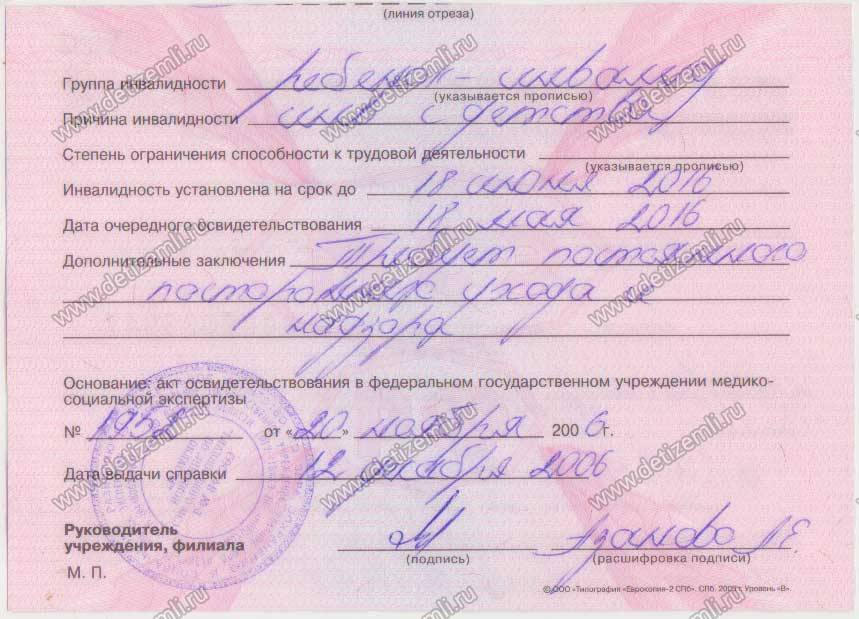 (линия отреза)
Группа инвалидности ребенок-инвалид
(указывается прописью)
Причина инвалидности инв с детства
Степень ограничения способности к трудовой деятельности
(указывается прописью)
Инвалидность установлена на срок до 18 июня 2016
Дата очередного освидетельствования 18 мая 2016
Дополнительные заключения Требует постоянного
постороннего ухода и
надзора
Основание: акт освидетельствования в федеральном государственном учреждении медико-
социальной экспертизы
№ 1958 от «20» ноября 2006 г.
Дата выдачи справки 12 2006
Руководитель
учреждения, филиала
(подпись) (расшифровка подписи)
М. П.
© ООО «Типография «Еврокопия-2 СПб». СПб. 2005 г. Уровень «В».
www.detizemli.ru
www.detizemli.ru
www.detizemli.ru
www.detizemli.ru
www.detizemli.ru
www.detizemli.ru
www.detizemli.ru
www.detizemli.ru